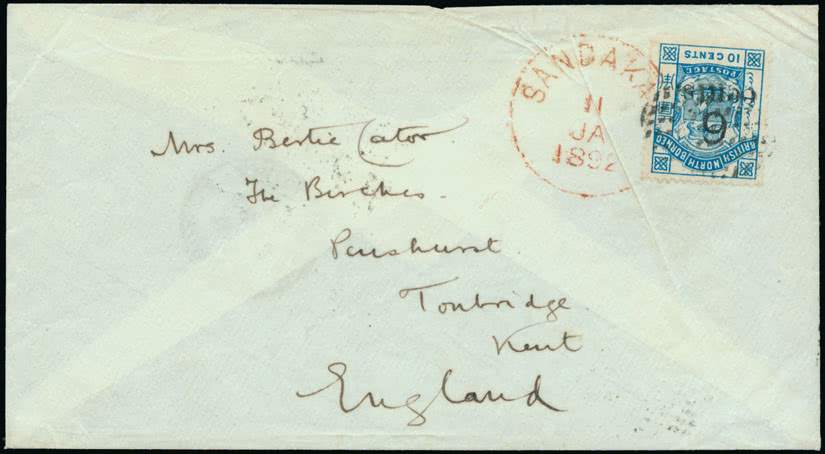 SANDAKA
11
JA
1892
BRITISH NORTH BORNEO
POSTAGE
10 CENTS
6
Cents.
Mrs. Bertie Cator
The Birches.
Penshurst
Tonbridge
Kent
England